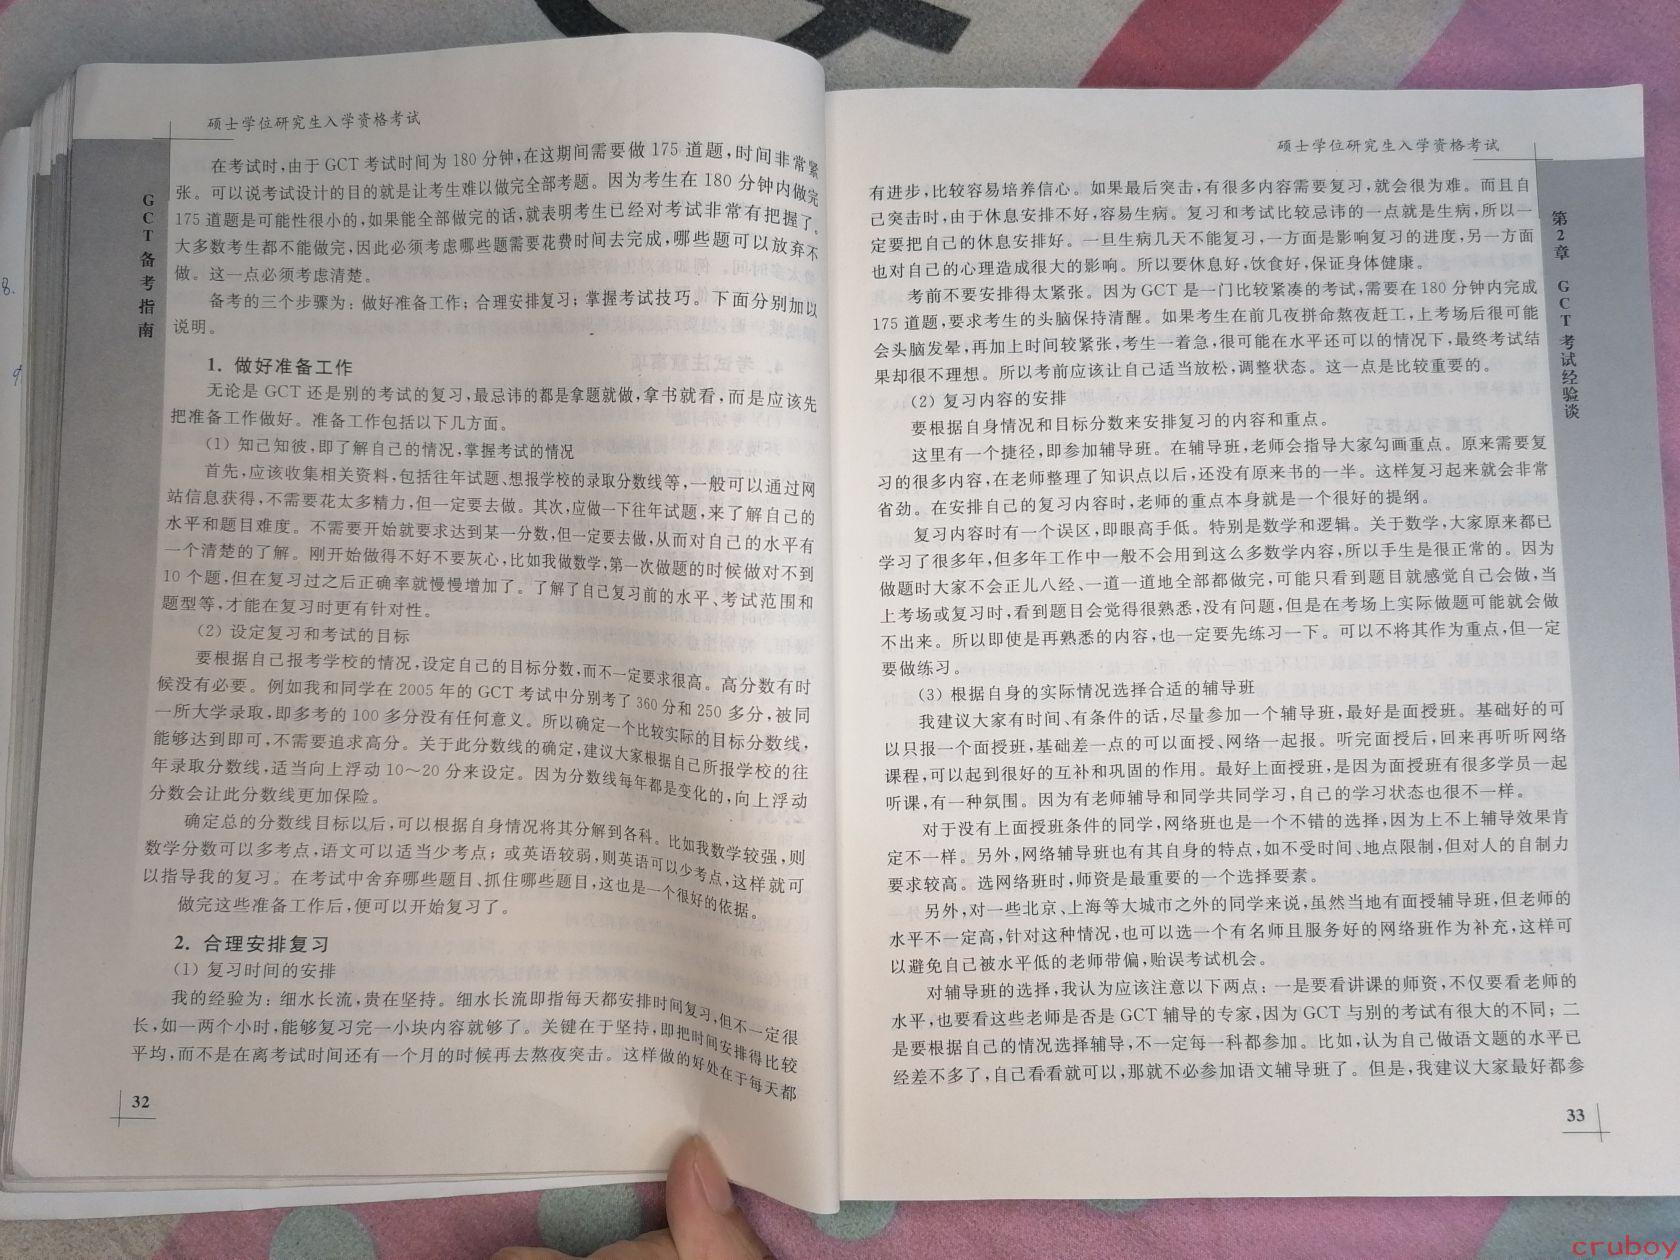 硕士学位研究生入学资格考试
GCT备考指南
在考试时,由于GCT考试时间为180分钟,在这期间需要做175道题,时间非常紧
张。可以说考试设计的目的就是让考生难以做完全部考题。因为考生在180分钟内做完
175道题是可能性很小的,如果能全部做完的话,就表明考生已经对考试非常有把握了。
大多数考生都不能做完,因此必须考虑哪些题需要花费时间去完成,哪些题可以放弃不
做。这一点必须考虑清楚。
备考的三个步骤为:做好准备工作;合理安排复习;掌握考试技巧。下面分别加以
说明。
1. 做好准备工作
无论是GCT还是别的考试的复习,最忌讳的都是拿题就做,拿书就看,而是应该先
把准备工作做好。准备工作包括以下几方面。
(1) 知己知彼,即了解自己的情况,掌握考试的情况
首先,应该收集相关资料,包括往年试题、想报学校的录取分数线等,一般可以通过网
站信息获得,不需要花太多精力,但一定要去做。其次,应做一下往年试题,来了解自己的
水平和题目难度。不需要开始就要求达到某一分数,但一定要去做,从而对自己的水平有
一个清楚的了解。刚开始做得不好不要灰心,比如我做数学,第一次做题的时候做对不到
10个题,但在复习过之后正确率就慢慢增加了。了解了自己复习前的水平、考试范围和
题型等,才能在复习时更有针对性。
(2) 设定复习和考试的目标
要根据自己报考学校的情况,设定自己的目标分数,而不一定要求很高。高分数有时
候没有必要。例如我和同学在2005年的GCT考试中分别考了360分和250多分,被同
一所大学录取,即多考的100多分没有任何意义。所以确定一个比较实际的目标分数线,
能够达到即可,不需要追求高分。关于此分数线的确定,建议大家根据自己所报学校的往
年录取分数线,适当向上浮动10～20分来设定。因为分数线每年都是变化的,向上浮动
分数会让此分数线更加保险。
确定总的分数线目标以后,可以根据自身情况将其分解到各科。比如我数学较强,则
数学分数可以多考点,语文可以适当少考点;或英语较弱,则英语可以少考点,这样就可
以指导我的复习。在考试中舍弃哪些题目、抓住哪些题目,这也是一个很好的依据。
做完这些准备工作后,便可以开始复习了。
2. 合理安排复习
(1) 复习时间的安排
我的经验为:细水长流,贵在坚持。细水长流即指每天都安排时间复习,但不一定很
长,如一两个小时,能够复习完一小块内容就够了。关键在于坚持,即把时间安排得比较
平均,而不是在离考试时间还有一个月的时候再去熬夜突击。这样做的好处在于每天都
32
硕士学位研究生入学资格考试
第2章 GCT考试经验谈
有进步,比较容易培养信心。如果最后突击,有很多内容需要复习,就会很为难。而且自
己突击时,由于休息安排不好,容易生病。复习和考试比较忌讳的一点就是生病,所以一
定要把自己的休息安排好。一旦生病几天不能复习,一方面是影响复习的进度,另一方面
也对自己的心理造成很大的影响。所以要休息好,饮食好,保证身体健康。
考前不要安排得太紧张。因为GCT是一门比较紧凑的考试,需要在180分钟内完成
175道题,要求考生的头脑保持清醒。如果考生在前几夜拼命熬夜赶工,上考场后很可能
会头脑发晕,再加上时间较紧张,考生一着急,很可能在水平还可以的情况下,最终考试结
果却很不理想。所以考前应该让自己适当放松,调整状态。这一点是比较重要的。
(2) 复习内容的安排
要根据自身情况和目标分数来安排复习的内容和重点。
这里有一个捷径,即参加辅导班。在辅导班,老师会指导大家勾画重点。原来需要复
习的很多内容,在老师整理了知识点以后,还没有原来书的一半。这样复习起来就会非常
省劲。在安排自己的复习内容时,老师的重点本身就是一个很好的提纲。
复习内容时有一个误区,即眼高手低。特别是数学和逻辑。关于数学,大家原来都已
学习了很多年,但多年工作中一般不会用到这么多数学内容,所以手生是很正常的。因为
做题时大家不会正儿八经、一道一道地全部都做完,可能只看到题目就感觉自己会做,当
上考场或复习时,看到题目会觉得很熟悉,没有问题,但是在考场上实际做题可能就会做
不出来。所以即使是再熟悉的内容,也一定要先练习一下。可以不将其作为重点,但一定
要做练习。
(3) 根据自身的实际情况选择合适的辅导班
我建议大家有时间、有条件的话,尽量参加一个辅导班,最好是面授班。基础好的可
以只报一个面授班,基础差一点的可以面授、网络一起报。听完面授后,回来再听听网络
课程,可以起到很好的互补和巩固的作用。最好上面授班,是因为面授班有很多学员一起
听课,有一种氛围。因为有老师辅导和同学共同学习,自己的学习状态也很不一样。
对于没有上面授班条件的同学,网络班也是一个不错的选择,因为上不上辅导效果肯
定不一样。另外,网络辅导班也有其自身的特点,如不受时间、地点限制,但对人的自制力
要求较高。选网络班时,师资是最重要的一个选择要素。
另外,对一些北京、上海等大城市之外的同学来说,虽然当地有面授辅导班,但老师的
水平不一定高,针对这种情况,也可以选一个有名师且服务好的网络班作为补充,这样可
以避免自己被水平低的老师带偏,贻误考试机会。
对辅导班的选择,我认为应该注意以下两点:一是要看讲课的师资,不仅要看老师的
水平,也要看这些老师是否是GCT辅导的专家,因为GCT与别的考试有很大的不同;二
是要根据自己的情况选择辅导,不一定每一科都参加。比如,认为自己做语文题的水平已
经差不多了,自己看看就可以,那就不必参加语文辅导班了。但是,我建议大家最好都参
33
8.
9
cruboy